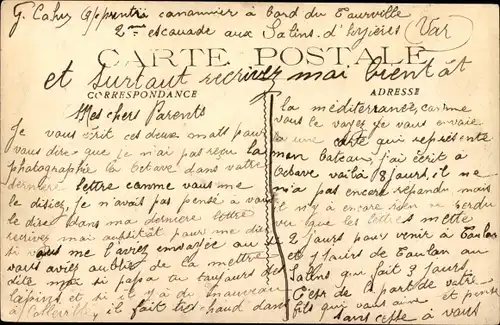 G. Cahus Apprenti canonnier à bord du Tourville
2ème escouade aux Salins d'hyères (Var)
CARTE POSTALE
et surtout recrivez mai bientôt
CORRESPONDANCE
ADRESSE
Mes chers Parents
Je vous écrit ces deux mots pour
vous dire que je n'ai pas reçu la
photographie la Octave dans votre
dernière lettre comme vous me
le disiez, Je n'avais pas pensé à vous
le dire dans ma dernière lettre
recrivez moi aussitôt pour me dire
si vous me l'avez envoyée ou si
vous aviez oublié de la mettre
dite moi si papa tu toujours des
lapins et si il y à du nouveau
à il fait très chaud dans
la méditerranez, comme
vous le voyez je vous envoie
une carte qui représente
mon bateau, j'ai écrit à
Octave voilà 8 jours, il ne
m'a pas encore répondu mais
il n'y à encore rien de perdu
vu que les lettres mette
2 jours pour venir à Toulon
et 1 jours de Toulon au
Salins que fait 3 jours
C'est de la part de votre
fils qui vous aime et pense
sans cesse à vous